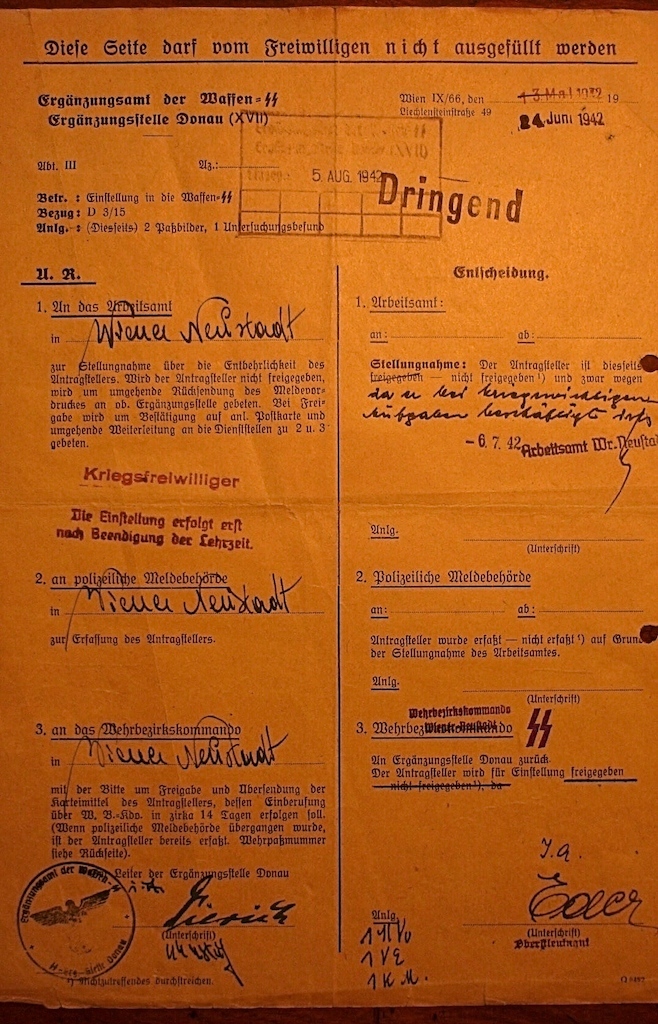 Diese Seite darf vom Freiwilligen nicht ausgefüllt werden
Ergänzungsamt der Waffen-SS
Ergänzungsstelle Donau (XVII)
Wien IX/66, den 13. Mai 1942 19
Liechtensteinstraße 49
24. Juni 1942
Abt. III Az.:
5. AUG. 1942
Dringend
Betr. : Einstellung in die Waffen-SS
Bezug: D 3/15
Anlg. : (Diesseits) 2 Paßbilder, 1 Untersuchungsbefund
U. R.
1. An das Arbeitsamt
in Wiener Neustadt
zur Stellungnahme über die Entbehrlichkeit des
Antragstellers. Wird der Antragsteller nicht freigegeben,
wird um umgehende Rücksendung des Meldevor-
druckes an ob. Ergänzungsstelle gebeten. Bei Frei-
gabe wird um Bestätigung auf anl. Postkarte und
umgehende Weiterleitung an die Dienststellen zu 2 u. 3
gebeten.
Kriegsfreiwilliger
Die Einstellung erfolgt erst
nach Beendigung der Lehrzeit.
2. an polizeiliche Meldebehörde
in Wiener Neustadt
zur Erfassung des Antragstellers.
3. an das Wehrbezirkskommando
in Wiener Neustadt
mit der Bitte um Freigabe und Übersendung der
Karteimittel des Antragstellers, dessen Einberufung
über W. B.-Kdo. in zirka 14 Tagen erfolgen soll.
(Wenn polizeiliche Meldebehörde übergangen wurde,
ist der Antragsteller bereits erfaßt. Wehrpaßnummer
siehe Rückseite).
Leiter der Ergänzungsstelle Donau
(Unterschrift)
Ergänzungsamt der Waffen-SS
¹) Nichtzutreffendes durchstreichen.
Entscheidung.
1. Arbeitsamt:
an: ab:
Stellungnahme: Der Antragsteller ist diesseits
freigegeben — nicht freigegeben¹) und zwar wegen
da er bei kriegswichtigen
Aufgaben beschäftigt ist
- 6. 7. 42 Arbeitsamt Wr. Neusta
Anlg.
(Unterschrift)
2. Polizeiliche Meldebehörde
an: ab:
Antragsteller wurde erfaßt — nicht erfaßt¹) auf Grun
der Stellungnahme des Arbeitsamtes.
Anlg.
(Unterschrift)
Wehrbezirkskommando
Wiener-Neustadt
3. Wehrbezirkskommando SS
An Ergänzungsstelle Donau zurück.
Der Antragsteller wird für Einstellung freigegeben
nicht freigegeben¹), da
I. A.
Eder
Anlg.
(Unterschrift)
Oberstleutnant